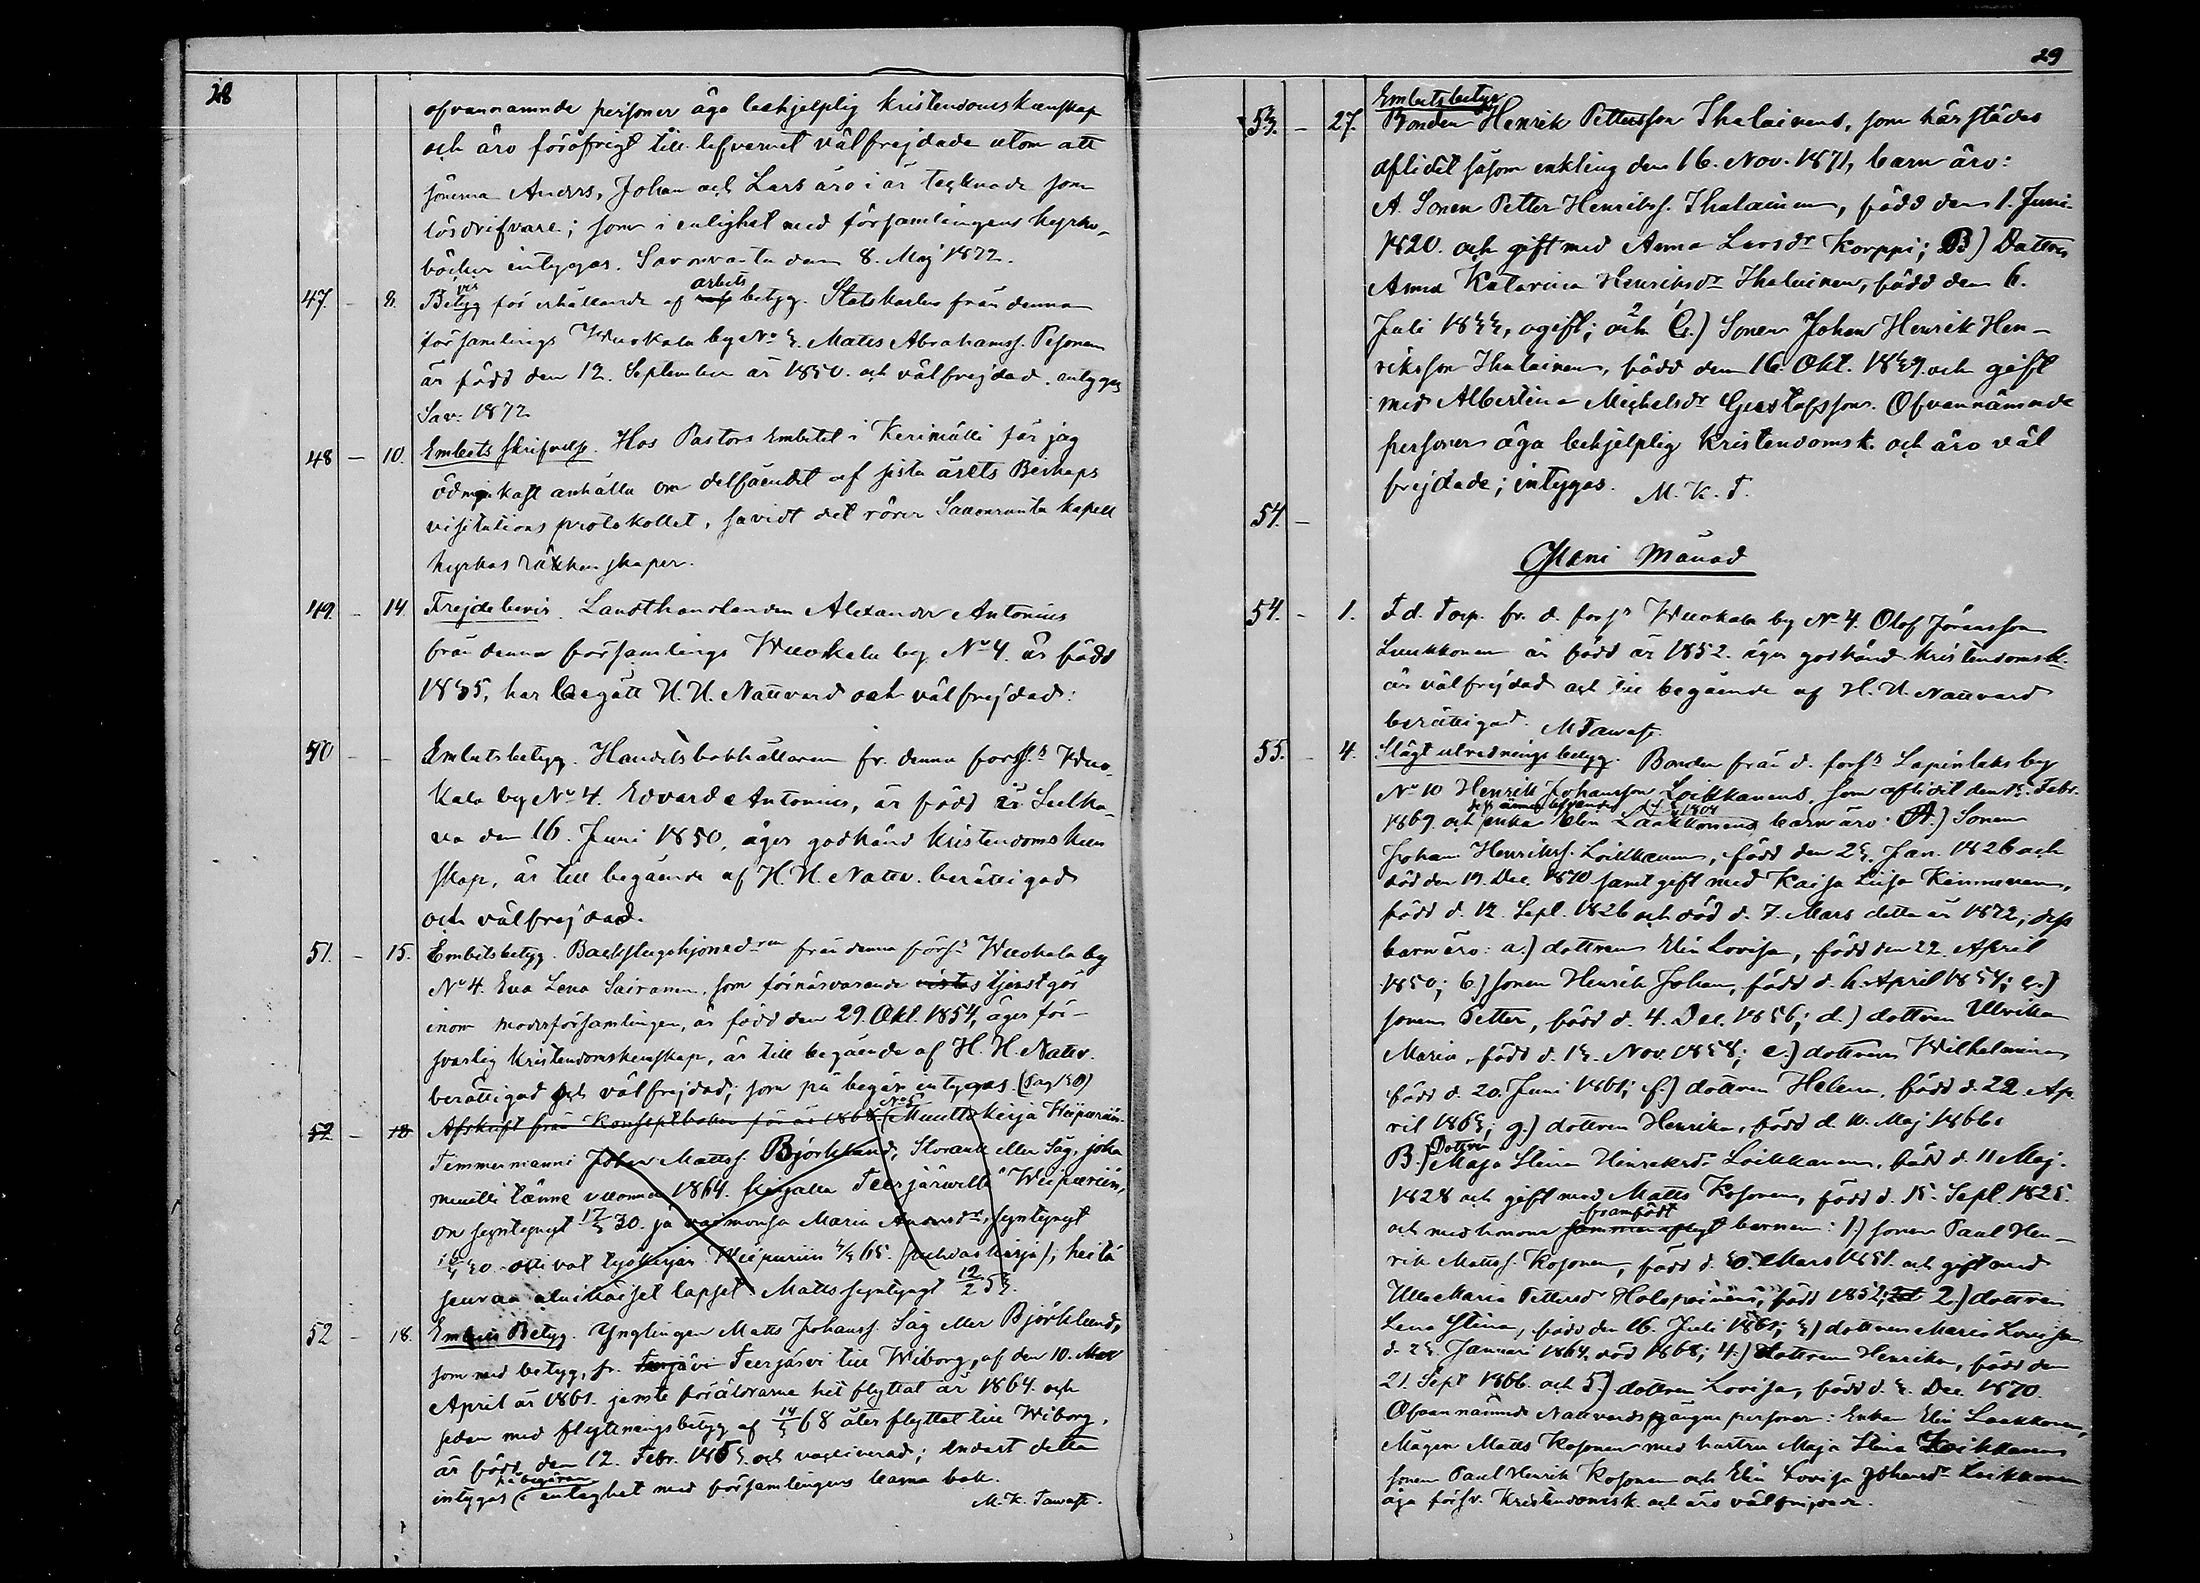 28
ofvannämnde personer äga behjelplig kristendomskunskap
och äro föröfrigt till lefvernet välfrejdade utom att
sönerna Anders, Johan och Lars äro i år tecknade som
lösdrifvare; som i enlighet med församlingens kyrko-
böcker intygas. Savonranta den 8. Maj 1872.
47. - 8. Betyg för erhållande af arbets betyg. Statskarlen från denna
församlings Wuokala by No 3. Matts Abrahamss. Pesonen
är född den 12. September år 1850. och välfrejdad. intygas
Sav. 1872
48 - 10. Embets skrifvelse. Hos Pastors Embetet i Kerimäki får jag
ödmjukast anhålla om delfåendet af sista årets Biskops
visitations protokollet, såvidt det rörer Savonranta kapell
kyrkas räkenskaper.
49. - 14. Frejdebevis. Landthandlanden Alexander Antonius
från denna församlings Wuokala by No 4. är född
1835, har begått H. H. Nattvard och välfrejdad:
50 - - Embetsbetyg. Handelsbokhållaren fr. denna förs:s Wuo-
kala by No 4. Edvard Antonius, är född i Sulka-
va den 16. Juni 1850, äger godkänd kristendomskun
skap, är till begående af H. H. Nattv. berättigad
och välfrejdad.
51. - 15. Embetsbetyg. Backstugohjonedrn från denna förs:s Wuokala by
No 4. Eva Lena Sairanen, som förnärvarande vistas tjenstgör
inom moderförsamlingen, är född den 29. Okt. 1854, äger för-
svarlig kristendomskunskap, är till begående af H. H. Nattv.
berättigad och välfrejdad; som på begär. intygas. (Pag 130)
52 - 18. Afskrift från Konseptboken för år 1868 (No 5 Muuttokirja Wiipuriin.
Temmermanni Johan Mattss. Björklund, Storank eller Såg, joka
muutti tänne vuonna 1864. Teerjärveltä Wiipuriin,
on syntynyt 17/3 30. ja vaimonsa Maria Andersdr, syntynyt
30. Wiipuriin 65. heitä
seuraa lapset Matts syntynyt 12/2 53.
52 - 18. Embets Betyg. Ynglingen Matts Johanss. Såg eller Björklund,
som med betyg, fr. Teerjärvi till Wiborg, af den 10. Mar
April år 1861. jemte föräldrarne hit flyttat år 1864. och
sedan med flyttningsbetyg af 14/3 68 åter flyttat till Wiborg,
är född den 12. Febr. 1853. och vaccinerad; endast detta
intygas på begäran i enlighet med församlingens barna bok.
M. K. Tawast.
29
Embetsbetyg
53. - 27. Bonden Henrik Pettersson Ihalainens, som härstädes
aflidit såsom enkling den 16. Nov. 1871, barn äro:
A. Sonen Petter Henrikss. Ihalainen, född den 1. Juni
1820. och gift med Anna Larsdr Korppi; B) Dottren
Anna Katarina Henriksdr Ihalainen, född den 6.
Juli 1833, ogift; och C.) Sonen Johan Henrik Hen-
riksson Ihalainen, född den 16. Okt. 1839. och gift
med Albertina Michelsdr Gustafsson. Ofvannämnde
personer äga behjelplig kristendomsk. och äro väl
frejdade; intygas. M. K. T.
54. -
Juni Månad
54. - 1. F.d. Torp. fr. d. förs:s Wuokala by No 4. Olof Jöransson
Luukkonen är född år 1852. äger godkänd kristendomsk.
är välfrejdad och till begående af H. H. Nattvard
berättigad. M Tawast.
55. - 4. Slägtutredningsbetyg. Bonden från d. förs:s Lapinlaks by
No 10 Henrik Johansson Loikkanens, som aflidit den 13. Febr.
1869. och dess ännu lefvande enka Elin Laakkonens barn äro: A.) Sonen
Johan Henrikss. Loikkanen, född den 23. Jan. 1826 och
död den 19. Dec. 1870 samt gift med Kaisa Liisa Kinnunen,
född d. 12. Sept. 1826 och död d. 7. Mars detta år 1872; dess
barn äro: a.) dottren Elin Lovisa, född den 22. April
1850; b.) sonen Henrik Johan, född d. 6. April 1854; c.)
sonen Petter, född d. 4. Dec. 1856; d.) dottren Ulrika
Maria, född d. 13. Nov. 1858; e.) dottren Wilhelmina
född d. 20. Juni 1861; f.) dottren Helena, född d. 22 Ap
ril 1863; g.) dottren Henrika, född d. 10. Maj 1866.
B.) Dottren Maja Stina Henriksdr Loikkanen, född d. 11 Maj.
1828 och gift med Matts Kosonen, född d. 15. Sept. 1825.
och med honom framfödt barnen: 1.) sonen Paul Hen-
rik Mattss. Kosonen, född d. 30. Mars 1851. och gift med
Ulla Maria Pettersdr Holopainen, född 1852; 2.) dottren
Lena Stina, född den 16. Juli 1861; 3.) dottren Maria Lovisa
d. 23. Januari 1864. död 1868; 4.) dottren Henrika, född den
21. Sept 1866. och 5.) dottren Lovisa, född d. 3. Dec. 1870.
Ofvannämnde Nattvardsgångne personer: Enkan Elin Laakkonen,
Mågen Matts Kosonen med hustru Maja Stina Loikkanen
sonen Paul Henrik Kosonen och Elin Lovisa Johansdr Loikkanen
äga försv. Kristendomsk. och äro välfrejdade.